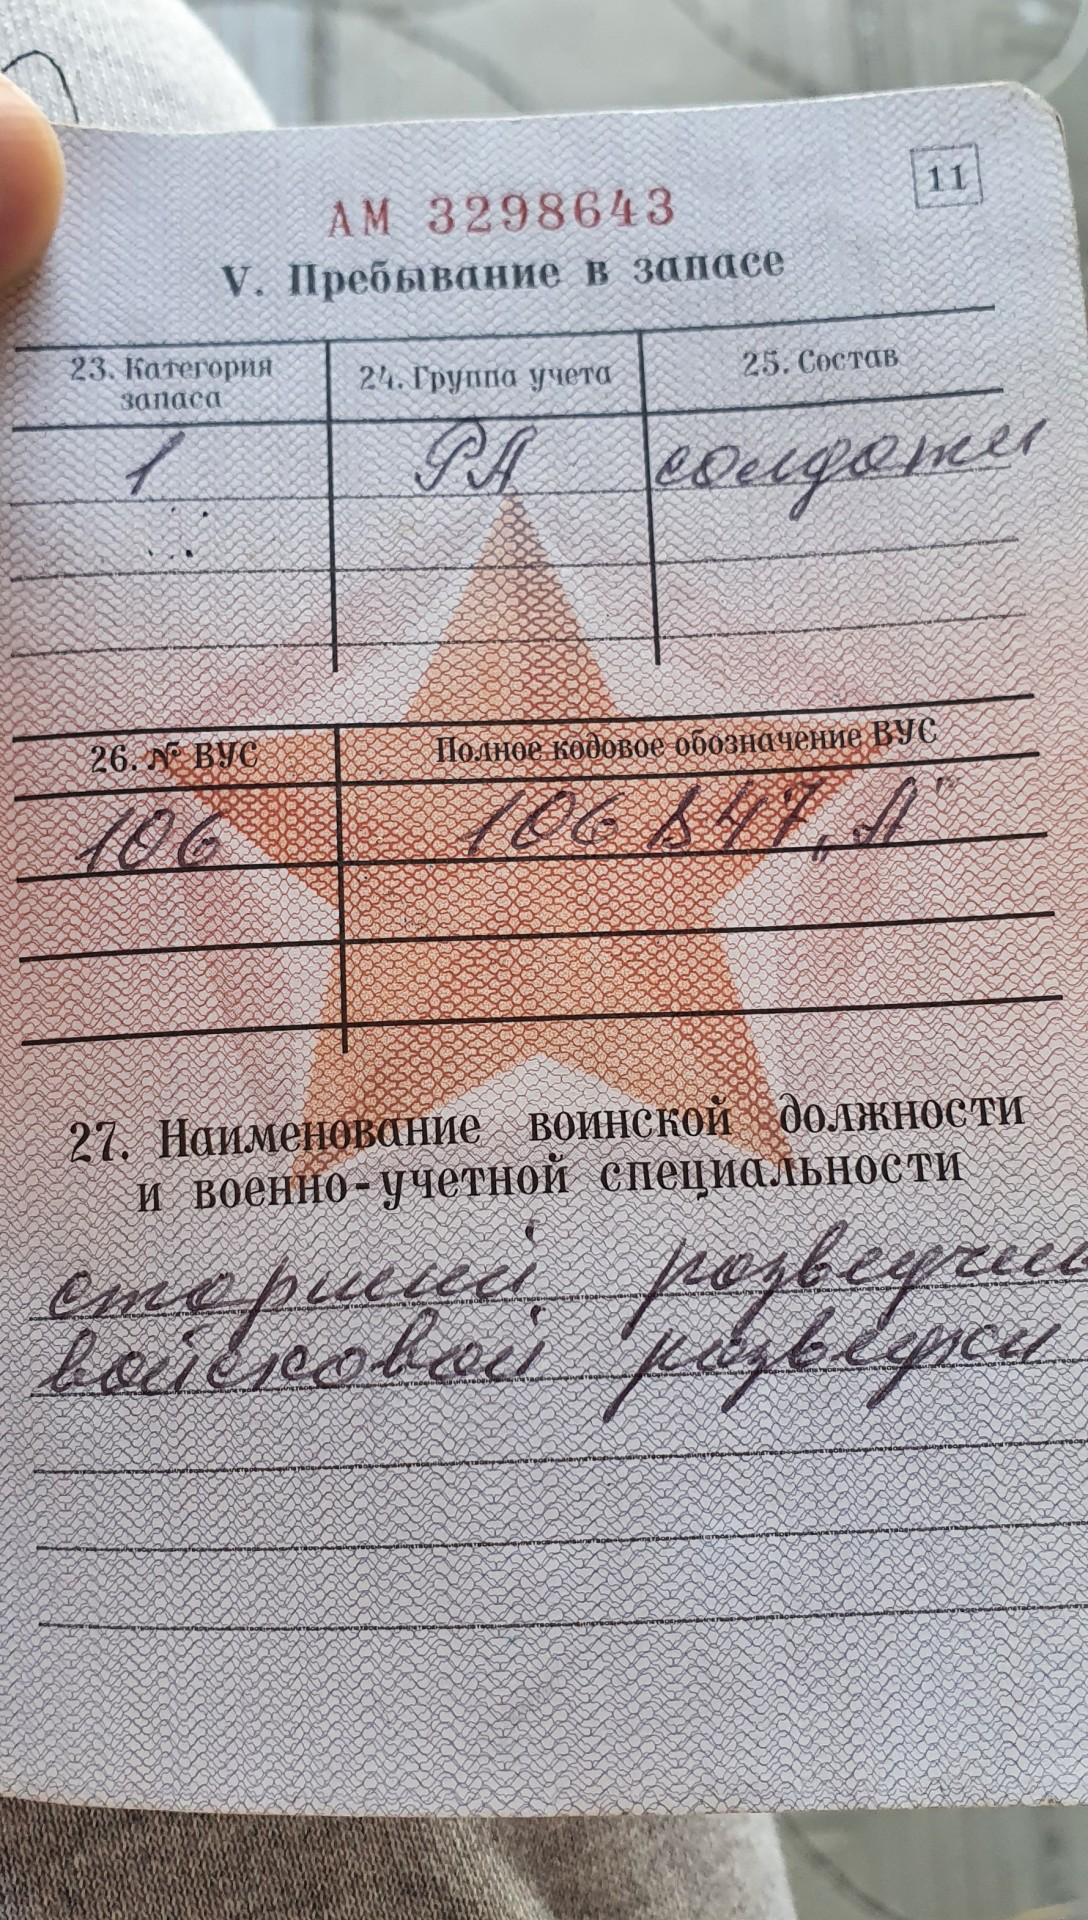 11
АМ 3298643
V. Пребывание в запасе
23. Категория запаса
24. Группа учета
25. Состав
1
РА
солдаты
26. № ВУС
Полное кодовое обозначение ВУС
106
106 847 „А"
27. Наименование воинской должности
и военно-учетной специальности
старший разведчи
войсковой разведки